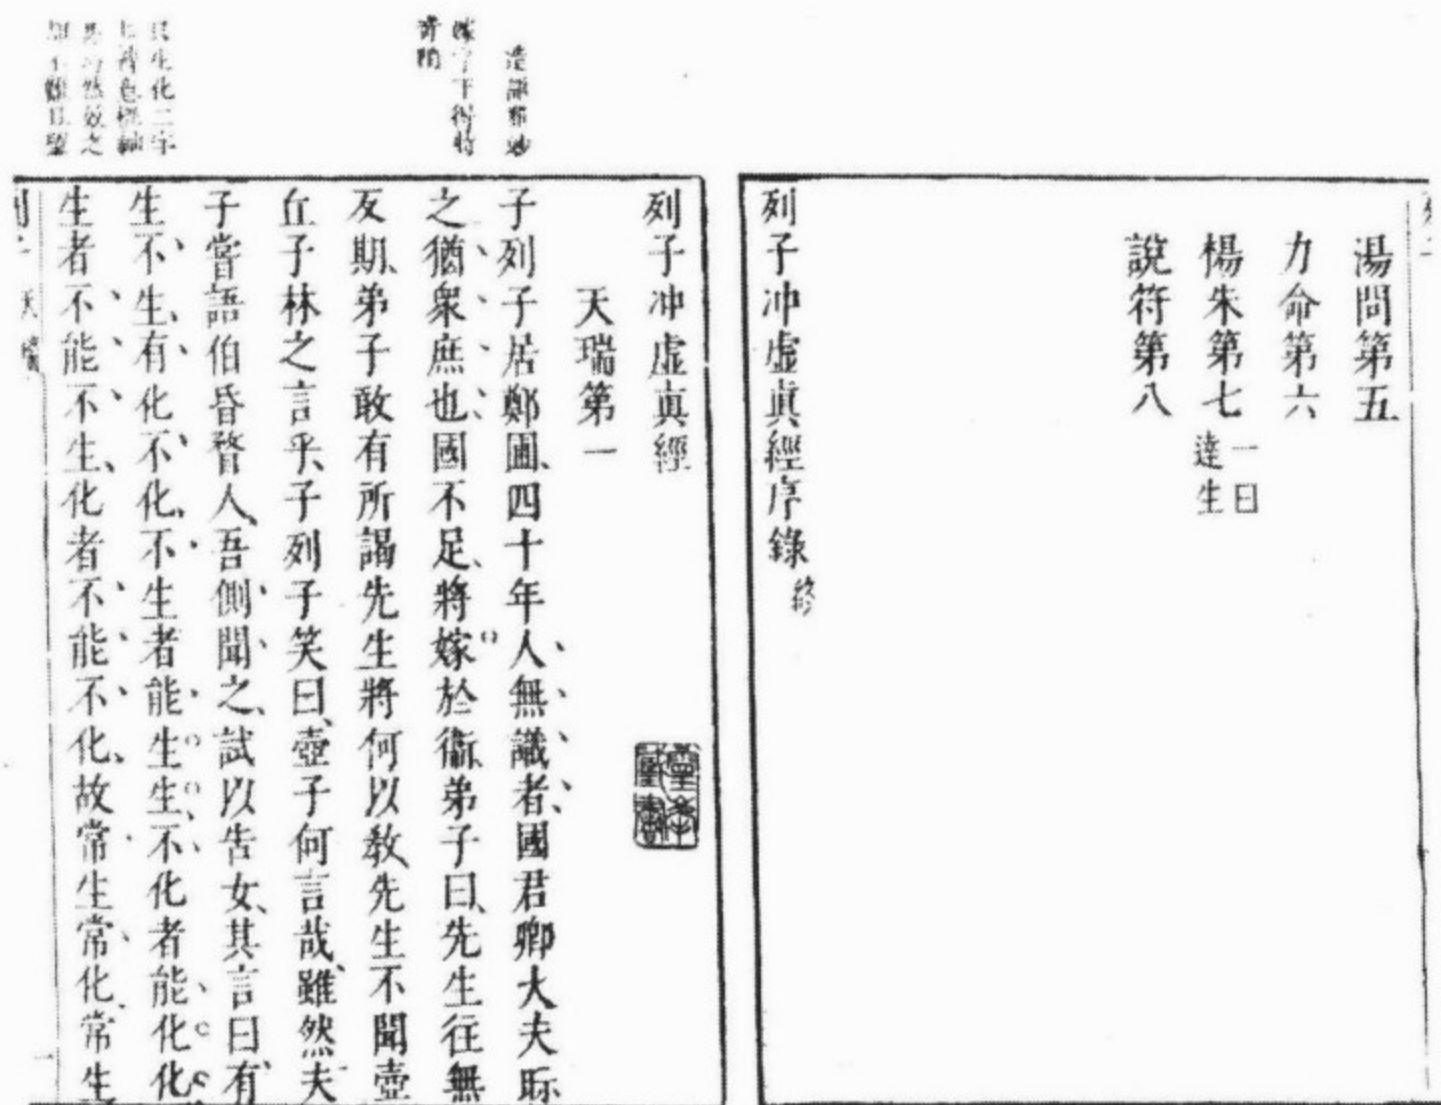 湯問第五
力命第六
楊朱第七 一曰達生
說符第八
列子冲虛眞經序錄 終
列子冲虛眞經
天瑞第一
子列子居鄭圃、四十年人無識者、國君卿大夫眎
之猶衆庶也、國不足、將嫁於衞、弟子曰、先生往無
反期、弟子敢有所謁先生將何以敎、先生不聞壺
丘子林之言乎、子列子笑曰、壺子何言哉、雖然夫
子嘗語伯昏瞀人、吾側聞之、試以告女、其言曰、有
生不生、有化不化、不生者能生生、不化者能化化
生者不能不生、化者不能不化、故常生常化、常生
造語都妙
嫁字下得特
只生化二字